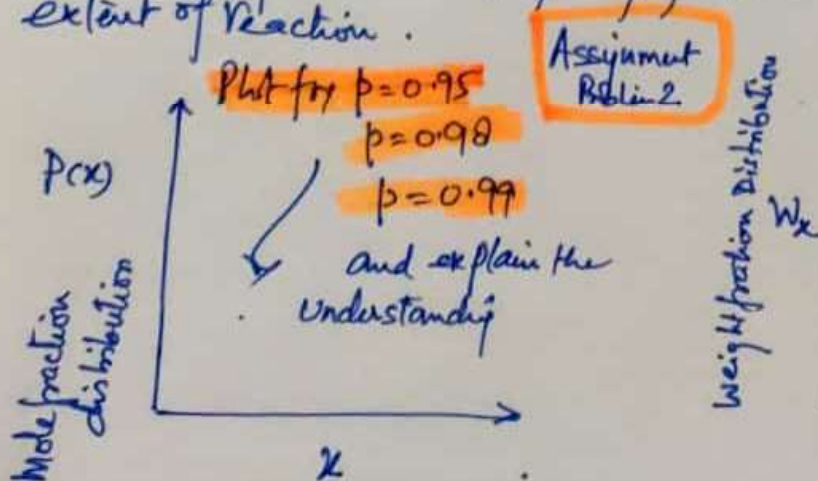 extent of reaction.
Assignment
Problem 2
Plot for p=0.95
p=0.98
p=0.99
and explain the
Understanding
P(x)
Mole fraction
distribution
x
Weight fration Distribution
Wx